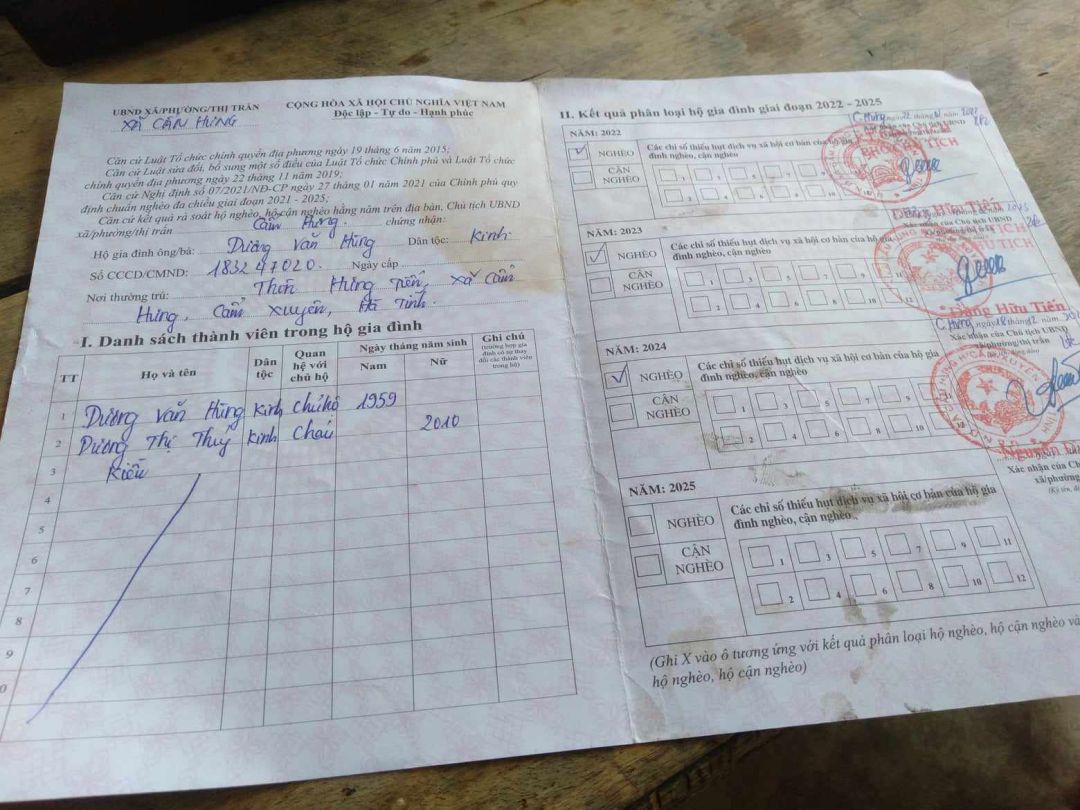 UBND XÃ/PHƯỜNG/THỊ TRẤN
XÃ CẨM HƯNG
CỘNG HÒA XÃ HỘI CHỦ NGHĨA VIỆT NAM
Độc lập - Tự do - Hạnh phúc
Căn cứ Luật Tổ chức chính quyền địa phương ngày 19 tháng 6 năm 2015;
Căn cứ Luật sửa đổi, bổ sung một số điều của Luật Tổ chức Chính phủ và Luật Tổ chức
chính quyền địa phương ngày 22 tháng 11 năm 2019;
Căn cứ Nghị định số 07/2021/NĐ-CP ngày 27 tháng 01 năm 2021 của Chính phủ quy
định chuẩn nghèo đa chiều giai đoạn 2021 - 2025;
Căn cứ kết quả rà soát hộ nghèo, hộ cận nghèo hằng năm trên địa bàn, Chủ tịch UBND
xã/phường/thị trấn Cẩm Hưng chứng nhận:
Hộ gia đình ông/bà: Dương Văn Hùng Dân tộc: Kinh
Số CCCD/CMND: 183247020. Ngày cấp
Nơi thường trú: Thôn Hưng Tiến, xã Cẩm
Hưng, Cẩm Xuyên, Hà Tĩnh.
I. Danh sách thành viên trong hộ gia đình
TT Họ và tên Dân tộc Quan hệ với chủ hộ Ngày tháng năm sinh Nam Nữ Ghi chú
(trường hợp gia đình có sự thay đổi các thành viên trong hộ)
1 Dương Văn Hùng Kinh Chủ hộ 1959
2 Dương Thị Thuý Kinh Cháu 2010
3 Kiều
4
5
6
7
8
9
0
II. Kết quả phân loại hộ gia đình giai đoạn 2022 - 2025
NĂM: 2022
NGHÈO
CẬN NGHÈO
Các chỉ số thiếu hụt dịch vụ xã hội cơ bản của hộ gia
đình nghèo, cận nghèo
1 3 5 7
2 4 6 8 10
Xác nhận của Chủ tịch UBND
NĂM: 2023
NGHÈO
CẬN NGHÈO
Các chỉ số thiếu hụt dịch vụ xã hội cơ bản của hộ gia
đình nghèo, cận nghèo
1 3 5 7 9
2 4 6 8 10 12
Đặng Hữu Tiến
Xác nhận của Chủ tịch UBND
NĂM: 2024
NGHÈO
CẬN NGHÈO
Các chỉ số thiếu hụt dịch vụ xã hội cơ bản của hộ gia
đình nghèo, cận nghèo
1 3 5 7 9
2 4 6 8 10 12
Đặng Hữu Tiến
C. Hưng ngày 18 tháng 12 năm
Xác nhận của Chủ tịch UBND
xã/phường/thị trấn
NĂM: 2025
NGHÈO
CẬN NGHÈO
Các chỉ số thiếu hụt dịch vụ xã hội cơ bản của hộ gia
đình nghèo, cận nghèo
1 3 5 7 9 11
2 4 6 8 10 12
Xác nhận của Chủ
xã/phường
(Ghi X vào ô tương ứng với kết quả phân loại hộ nghèo, hộ cận nghèo và
hộ nghèo, hộ cận nghèo)